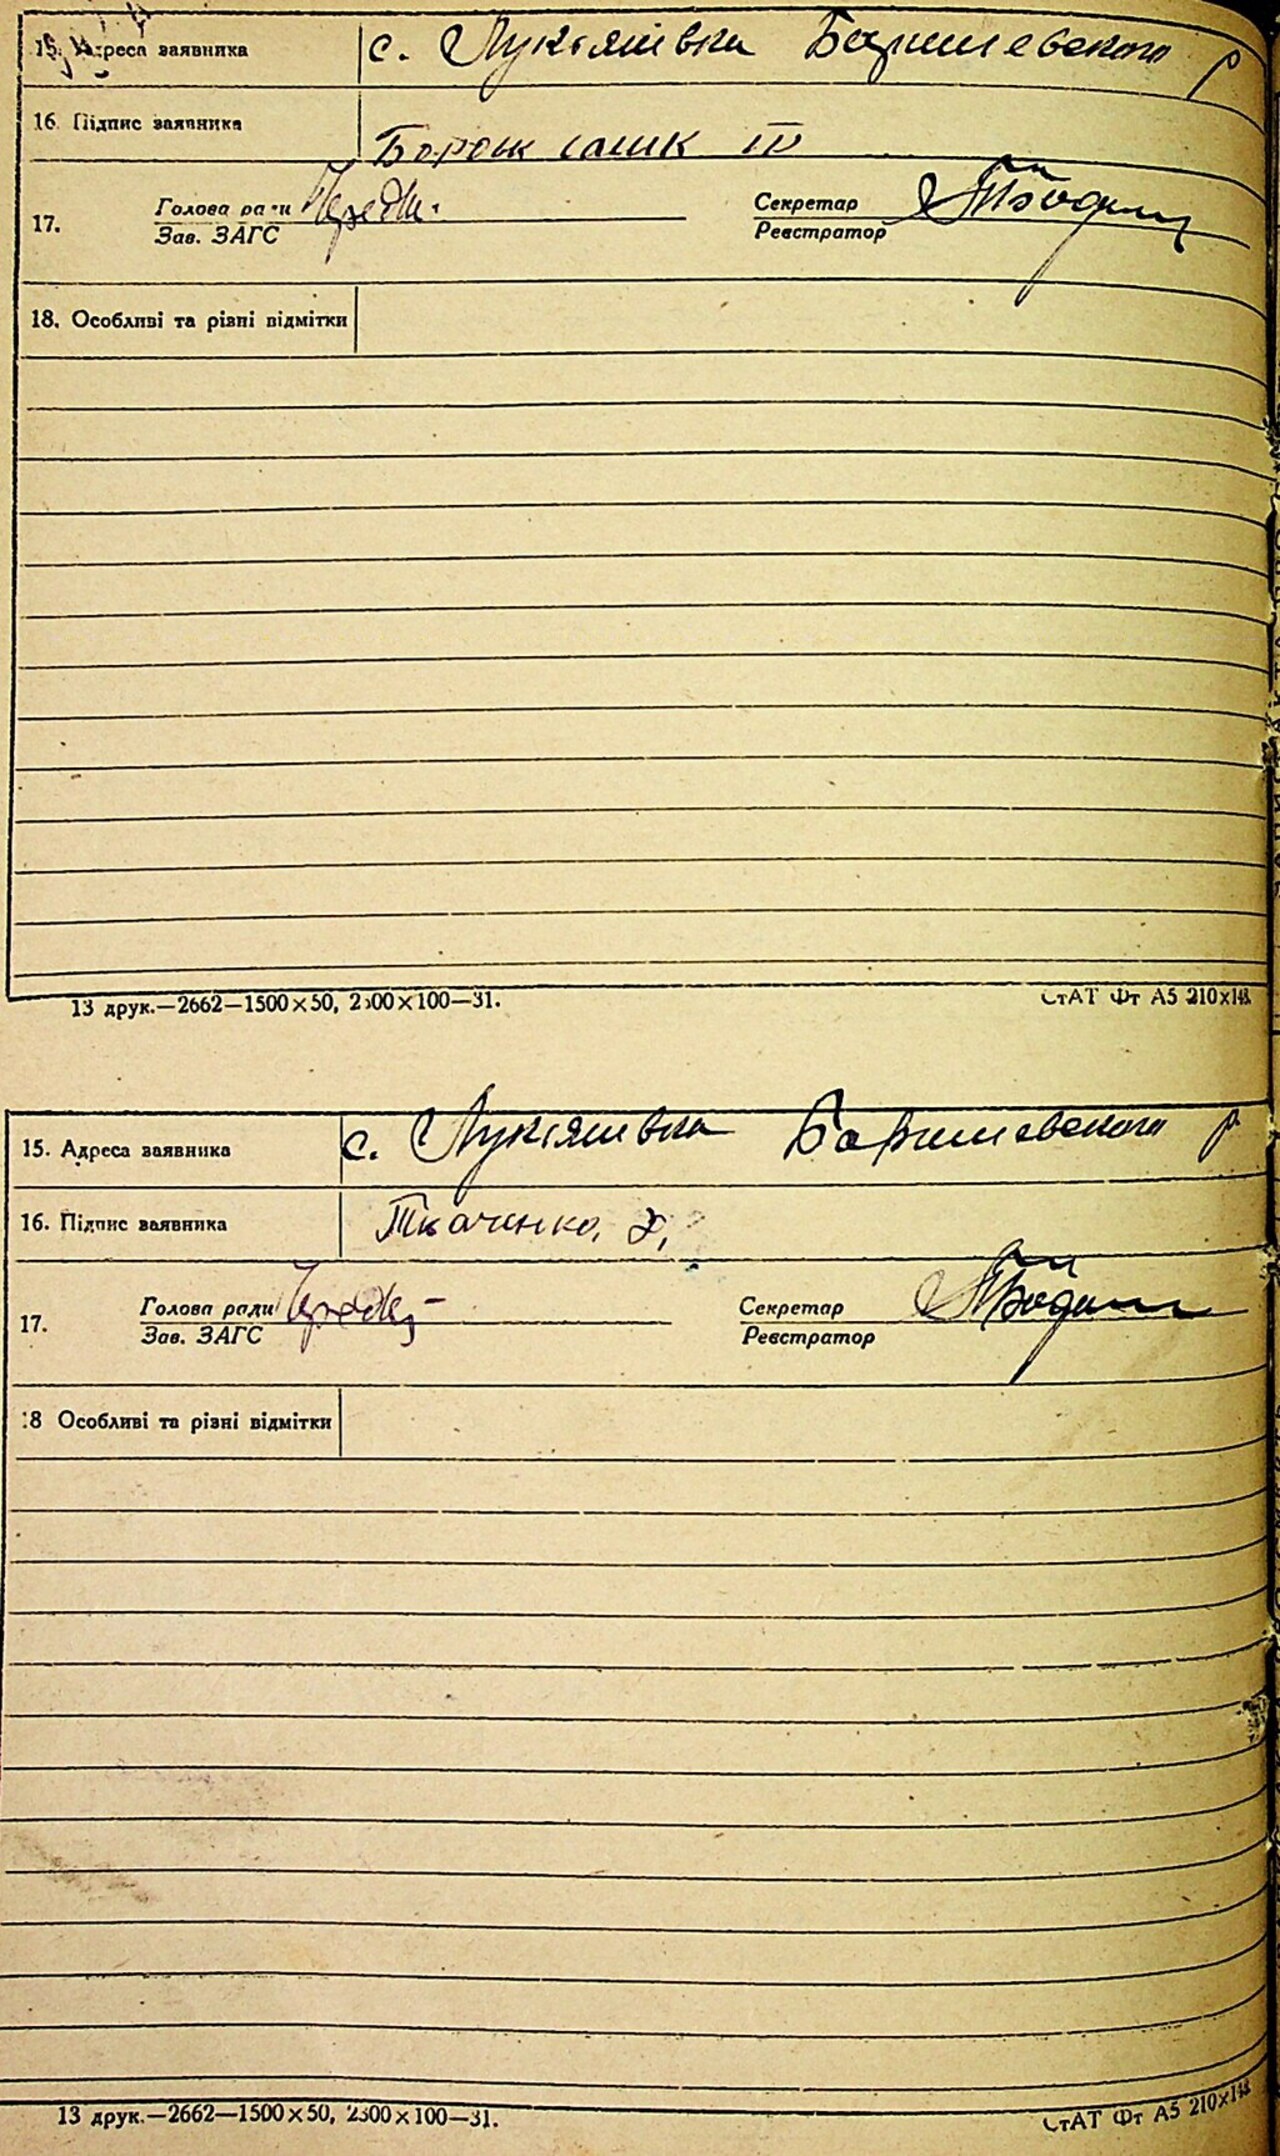 15. Адреса заявника с. Лукіянівка Баришевского р
16. Підпис заявника
17. Голова ради Секретар
Зав. ЗАГС Реєстратор
18. Особливі та різні відмітки
13 друк.—2662—1500×50, 2300×100—31. СтАТ Фт А5 210×148
15. Адреса заявника с. Лукіянівка Баришевского р
16. Підпис заявника Ткаченко. Х,
17. Голова ради Секретар
Зав. ЗАГС Реєстратор
18 Особливі та різні відмітки
13 друк.—2662—1500×50, 2300×100—31. СтАТ Фт А5 210×148